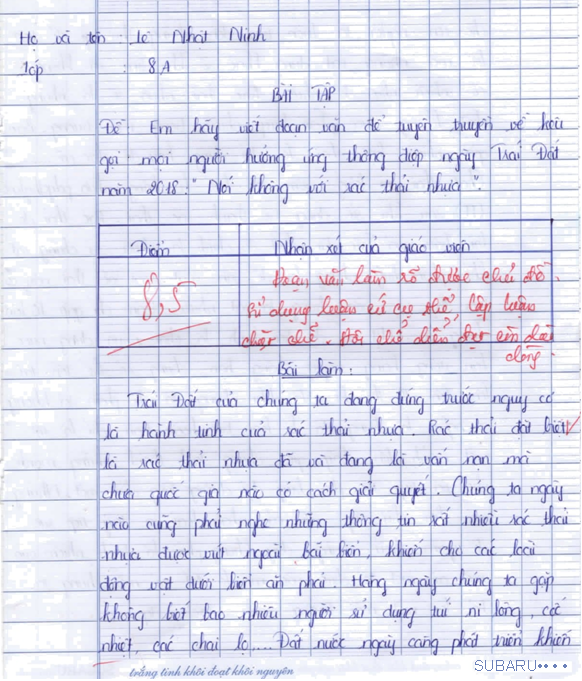 Họ và tên : Lê Nhật Ninh
Lớp : 8A
BÀI TẬP
Đề: Em hãy viết đoạn văn để tuyên truyền về kêu
gọi mọi người hưởng ứng thông điệp ngày Trái Đất
năm 2018: "Nói không với rác thải nhựa".
Điểm
Nhận xét của giáo viên
8,5
Đoạn văn làm rõ được chủ đề.
Sử dụng luận cứ cụ thể, lập luận
chặt chẽ. Đôi chỗ diễn đạt còn dài
dòng.
Bài làm:
Trái Đất của chúng ta đang đứng trước nguy cơ
là hành tinh của rác thải nhựa. Rác thải đặt biệt
là rác thải nhựa đã và đang là vấn nạn mà
chưa quốc gia nào có cách giải quyết. Chúng ta ngày
nào cũng phải nghe những thông tin rất nhiều rác thải
nhựa được vứt ngoài bãi biển, khiến cho các loài
động vật dưới biển ăn phải. Hàng ngày chúng ta gặp
không biết bao nhiêu người sử dụng túi ni lông, cốc
nhiệt, các chai lọ.... Đất nước ngày càng phát triển khiến
trắng tinh khôi đoạt khôi nguyên
SUBARU••••